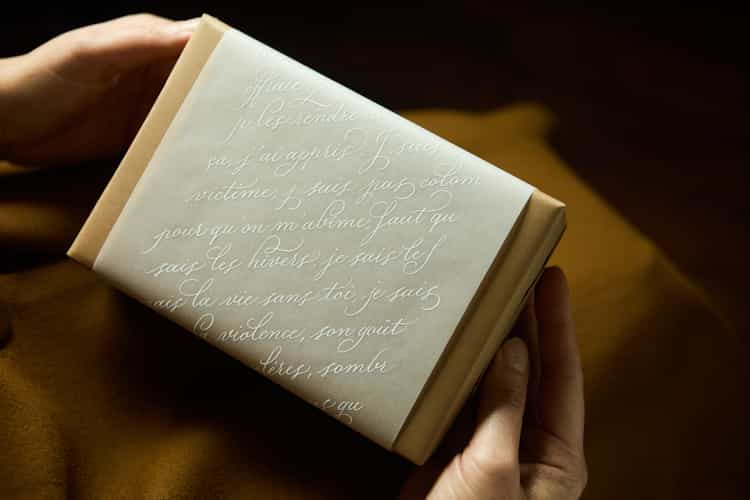 effraie
je les rendre
ça, j'ai appris. J'suis
victime, j'suis pas colom
pour qu'on m'abîme, faut qu
sais les hivers, je sais le f
ais la vie sans toi, je sais
la violence, son goût
lères, sombr
s qu